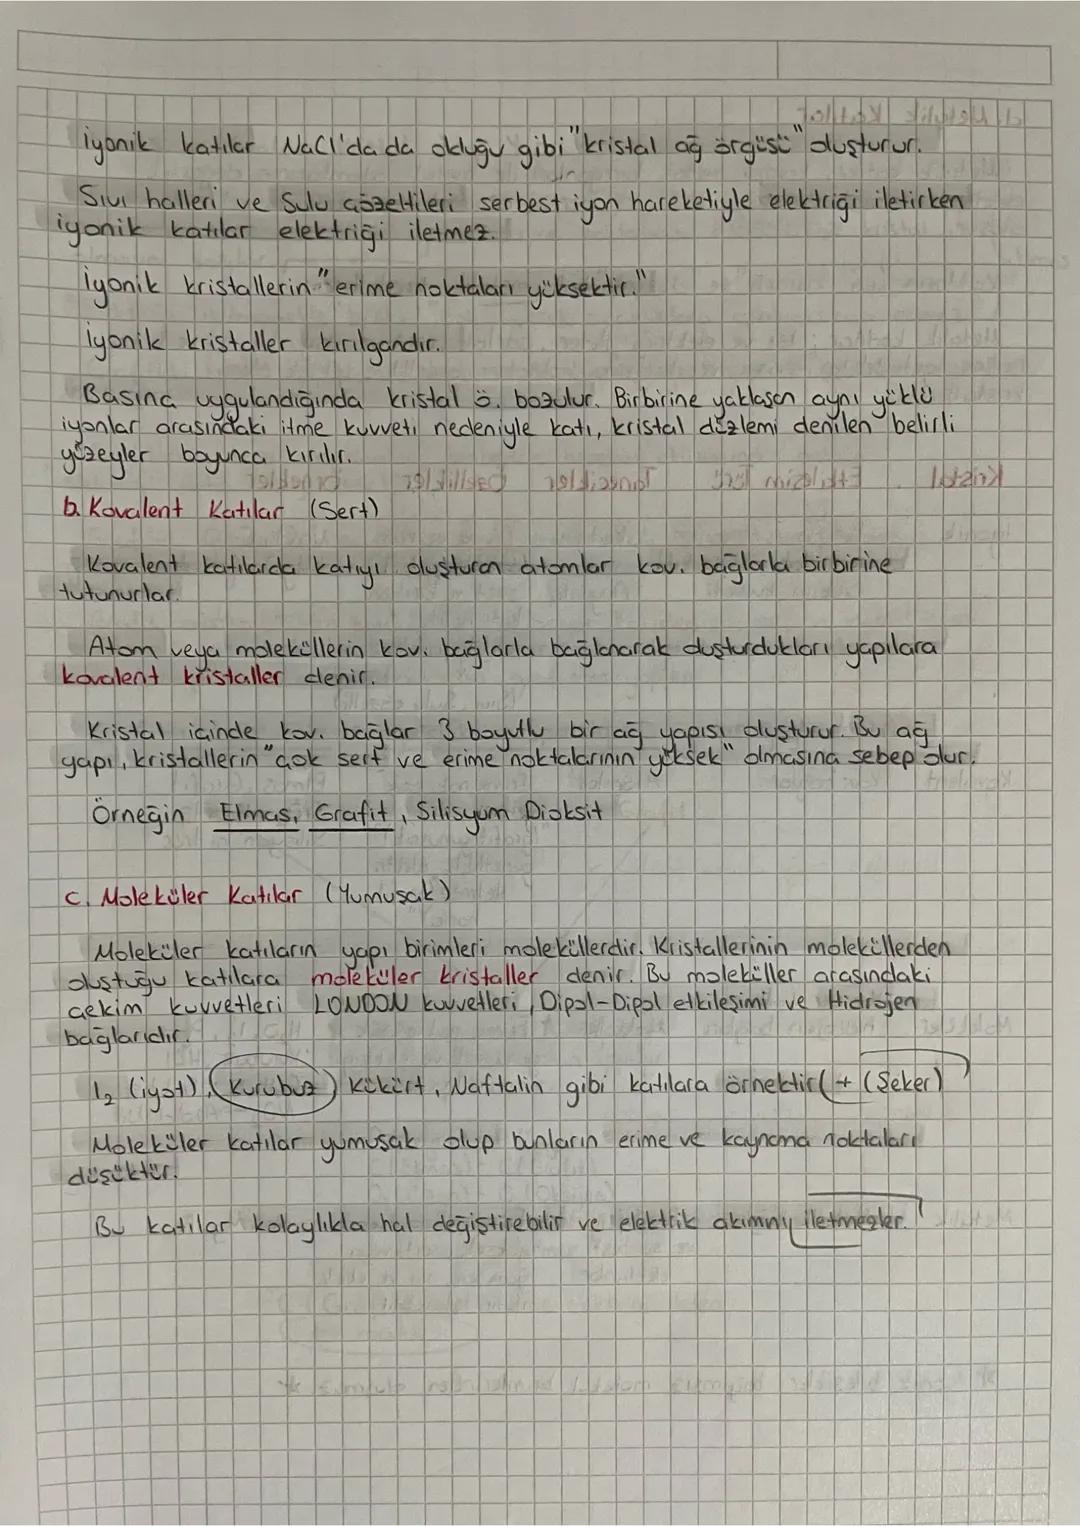 İyonik katılar NaCl'da da olduğu gibi "kristal ağ örgüsü" oluşturur.
Sıvı halleri ve Sulu çözeltileri serbest iyon hareketiyle elektriği iletirken
iyonik katılar elektriği iletmez.
İyonik kristallerin "erime noktaları yüksektir."
İyonik kristaller kırılgandır.
Basınç uygulandığında kristal ö. bozulur. Birbirine yaklaşan aynı yüklü
iyonlar arasındaki itme kuvveti nedeniyle katı, kristal düzlemi denilen belirli
yüzeyler boyunca kırılır.
b. Kovalent Katılar (Sert)
Kovalent katılarda katıyı oluşturan atomlar kov. bağlarla birbirine
tutunurlar.
Atom veya moleküllerin kov. bağlarla bağlanarak oluşturdukları yapılara
kovalent kristaller denir.
Kristal içinde kov. bağlar 3 boyutlu bir ağ yapısı oluşturur. Bu ağ
yapı, kristallerin "çok sert ve erime noktalarının yüksek" olmasına sebep olur.
Örneğin Elmas, Grafit, Silisyum Dioksit
c. Moleküler Katılar (Yumuşak)
Moleküler katıların yapı birimleri moleküllerdir. Kristallerinin moleküllerden
oluştuğu katılara moleküler kristaller denir. Bu moleküller arasındaki
çekim kuvvetleri LONDON kuvvetleri, Dipol-Dipol etkileşimi ve Hidrojen
bağlarıdır.
I₂ (iyot), (Kurubuz) Kükürt, Naftalin gibi katılara örnektir (+ (Şeker)
Moleküler katılar yumuşak olup bunların erime ve kaynama noktaları
düşüktür.
Bu katılar kolaylıkla hal değiştirebilir ve elektrik akımını iletmezler.